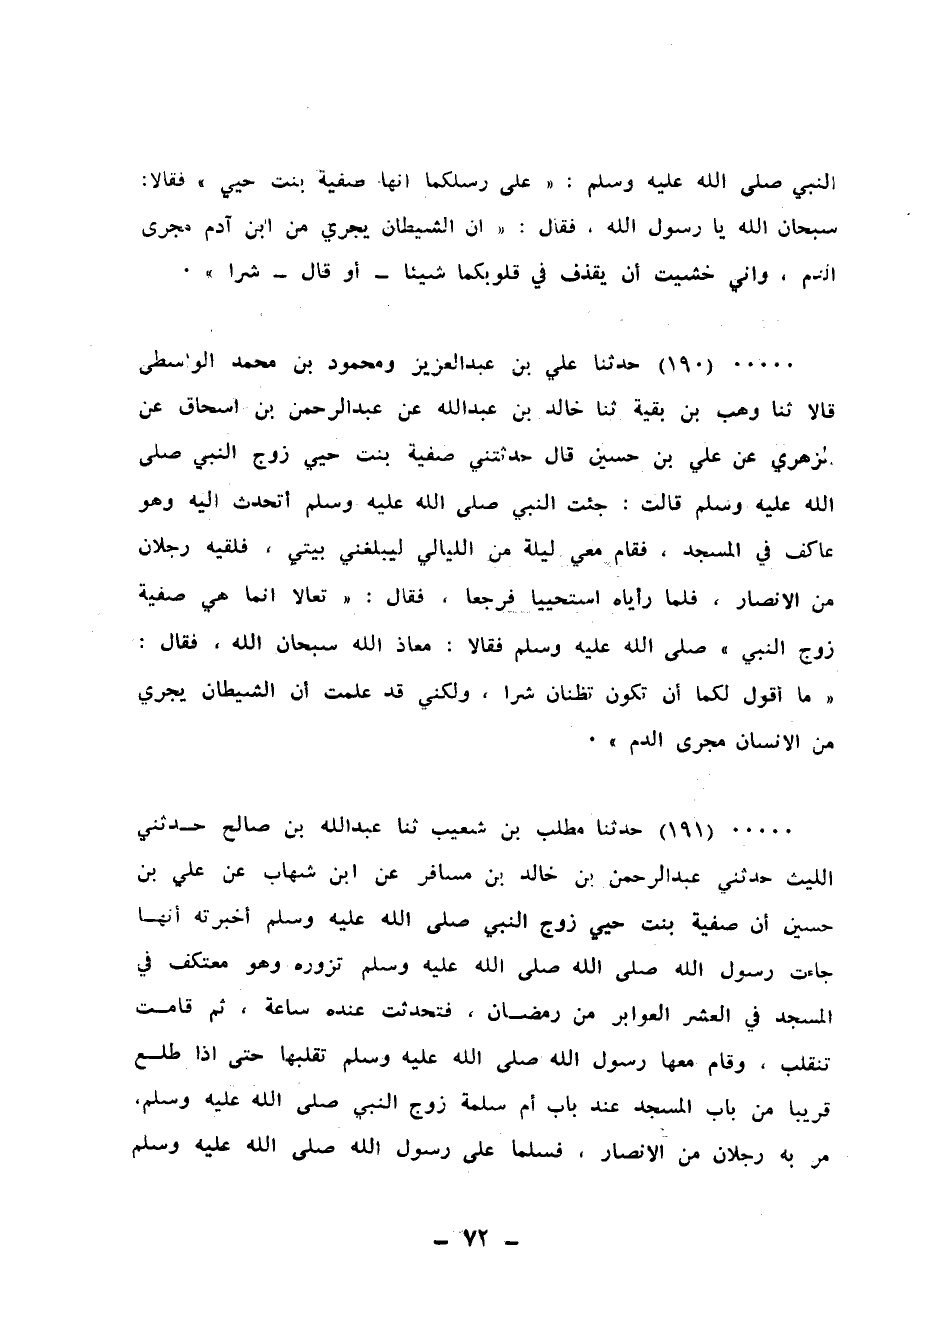 النبي صلى الله عليه وسلم : « على رسلكما انها صفية بنت حيي » فقالا:
سبحان الله يا رسول الله ، فقال : « ان الشيطان يجري من ابن آدم مجرى
الدم ، واني خشيت أن يقذف في قلوبكما شيئا ـ أو قال ـ شرا » ٠
٠٠٠٠٠ (١٩٠) حدثنا علي بن عبدالعزيز ومحمود بن محمد الواسطى
قالا ثنا وهب بن بقية ثنا خالد بن عبدالله عن عبدالرحمن بن اسحاق عن
الزهري عن علي بن حسين قال حدثتني صفية بنت حيي زوج النبي صلى
الله عليه وسلم قالت : جئت النبي صلى الله عليه وسلم أتحدث اليه وهو
عاكف في المسجد ، فقام معي ليلة من الليالي ليبلغني بيتي ، فلقيه رجلان
من الانصار ، فلما رأياه استحييا فرجعا ، فقال : « تعالا انما هي صفية
زوج النبي » صلى الله عليه وسلم فقالا : معاذ الله سبحان الله ، فقال :
« ما أقول لكما أن تكون تظنان شرا ، ولكني قد علمت أن الشيطان يجري
من الانسان مجرى الدم » ٠
٠٠٠٠٠ (١٩١) حدثنا مطلب بن شعيب ثنا عبدالله بن صالح حـدثني
الليث حدثني عبدالرحمن بن خالد بن مسافر عن ابن شهاب عن علي بن
حسين أن صفية بنت حيي زوج النبي صلى الله عليه وسلم أخبرته أنهـا
جاءت رسول الله صلى الله صلى الله عليه وسلم تزوره وهو معتكف في
المسجد في العشر العوابر من رمضـان ، فتحدثت عنده ساعة ، ثم قامـت
تنقلب ، وقام معها رسول الله صلى الله عليه وسلم تقلبها حتى اذا طلـع
قريبا من باب المسجد عند باب أم سلمة زوج النبي صلى الله عليه وسلم،
مر به رجلان من الانصار ، فسلما على رسول الله صلى الله عليه وسلم
ـ ٧٢ ـ